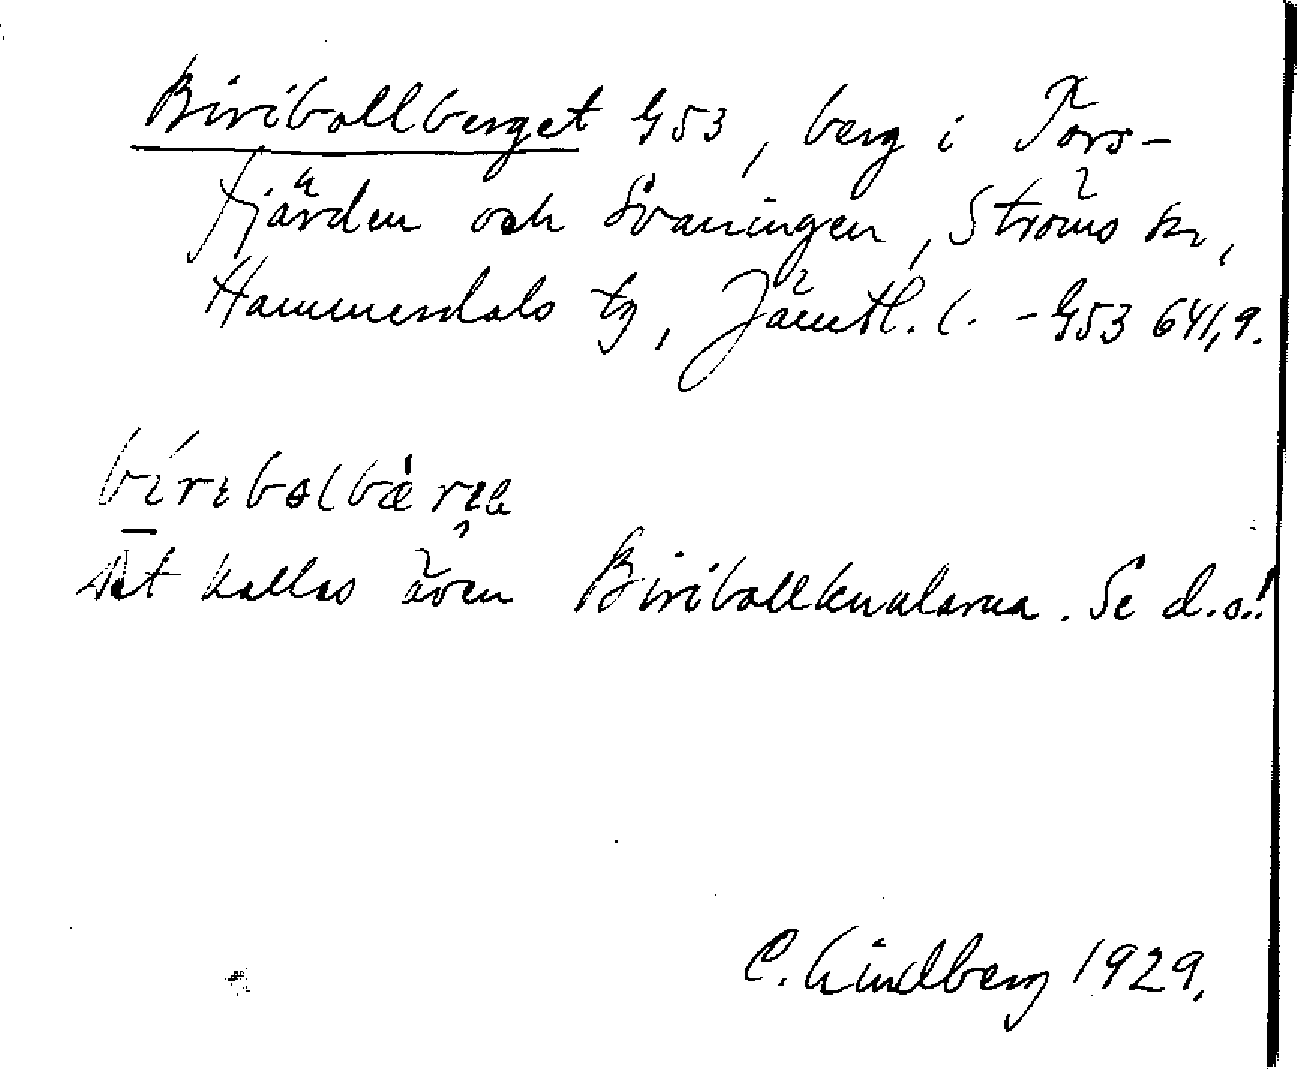 Biriballberget G53, berg i Tors-
fjärden och Svaningen, Ströms sn,
Hammerdals tg, Jämtl. l. - G53 641,9.
bíribalbæ̀rɛ
Det kallas även Biriballknularna. Se d.o.!
C. Lindberg 1929.